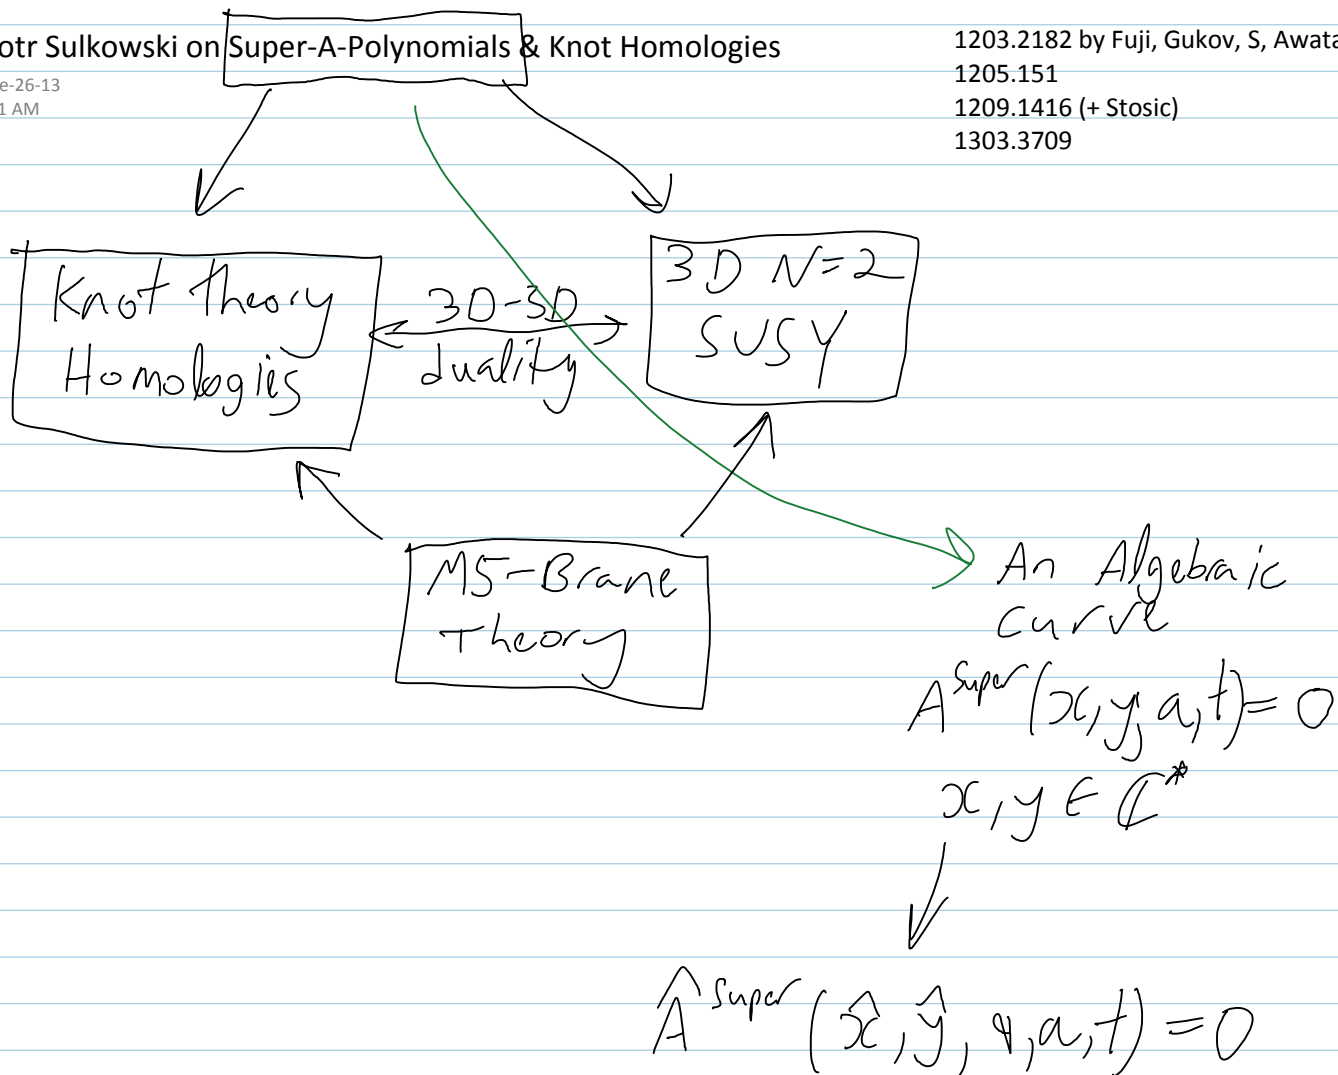 otr Sulkowski on Super-A-Polynomials & Knot Homologies
e-26-13
1 AM
1203.2182 by Fuji, Gukov, S, Awata
1205.151
1209.1416 (+ Stosic)
1303.3709
Knot theory
Homologies
3D-3D
duality
3D N=2
SUSY
M5-Brane
Theory
An Algebraic
curve
A^super(x,y,a,t)=0
x,y ∈ ℂ*
Â^super(x̂,ŷ,q,a,t)=0